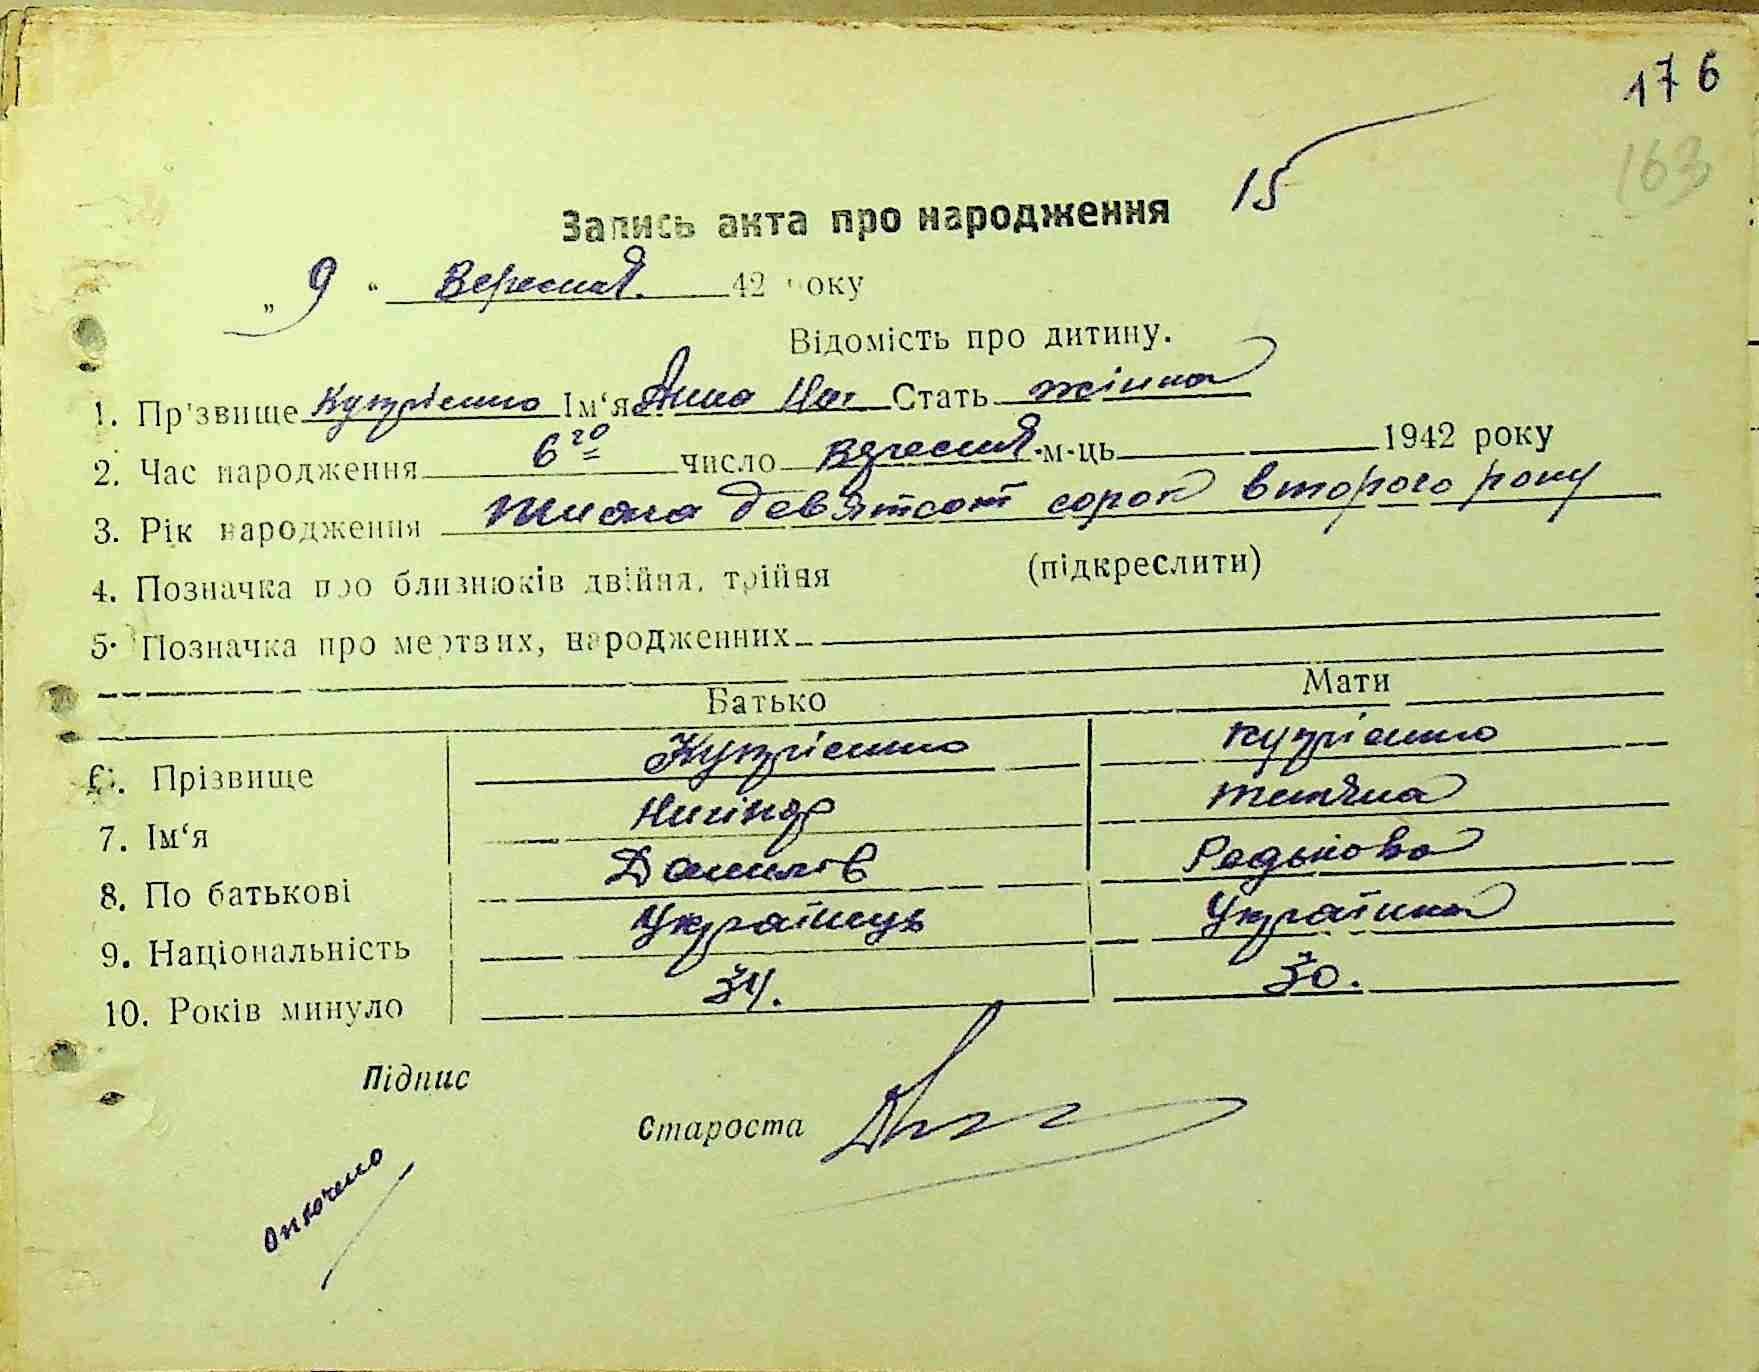 176
163
15
Запись акта про народження
„ 9 “ Вересня. 42 року
Відомість про дитину.
1. Пр'звище Купрієнко Ім‘я Анна Ни. Стать жінка
2. Час народження 6го число Вересня м-ць 1942 року
3. Рік народження тисяча дев'ятсот сорок второго року
4. Позначка про близнюків двійня, трійня (підкреслити)
5. Позначка про мертвих, народженних
Батько Мати
6. Прізвище Купрієнко Купрієнко
7. Ім‘я Тетяна
8. По батькові Данилов Радькова
9. Національність Українець Українка
10. Років минуло 34. 30.
Підпис
Староста